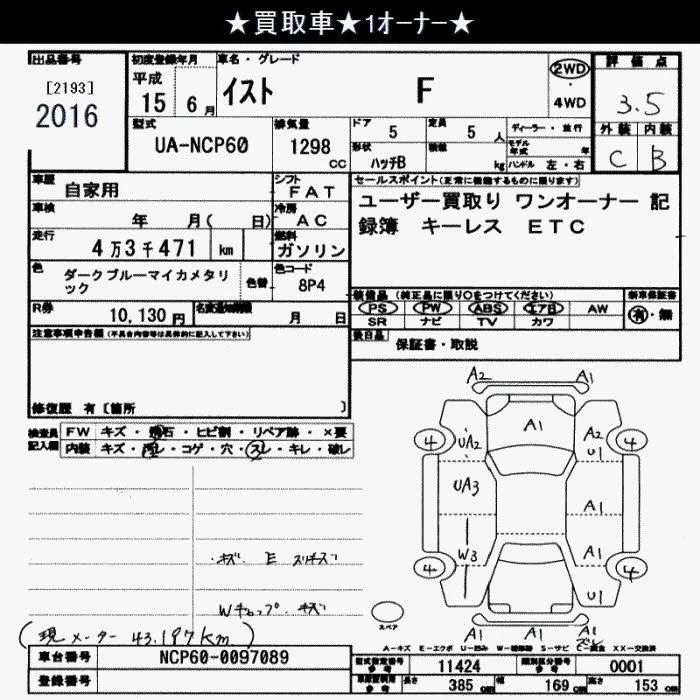 ★買取車★1オーナー★
出品番号
[2193]
2016
初度登録年月
平成
15 6月
車名・グレード
イスト F
2WD
・
4WD
評価点
3.5
外装 内装
C B
型式
UA-NCP60
排気量
1298
CC
ドア 5
定員 5 人
形状 ハッチB
積載 kg
ディーラー・並行
モデル年式 年
ハンドル 左・右
車歴 自家用
シフト FAT
車検 年 月( 日)
冷房 AC
走行 4万3千471 km
燃料 ガソリン
色 ダークブルーマイカメタリック
色替
色コード 8P4
R券 10,130円
名変通知期限 月 日
セールスポイント(正常に機能するものに限ります)
ユーザー買取り ワンオーナー 記
録簿 キーレス ETC
装備品 (純正品に限り○をつけてください)
PS PW ABS エアB AW
SR ナビ TV カワ
新車保証書
有・無
後日品 保証書・取説
注意事項申告欄(不具合内容等は具体的に記入して下さい)
修復歴 有〔箇所 〕
検査員記入欄
FW キズ・飛石・ヒビ割・リペア跡・×要
内装 キズ・汚レ・コゲ・穴・スレ・キレ・破レ
・キズ E スリキズ
Wキャップ・キズ
(現メーター 43.197km)
A2 A1
A1
4 UA2 A2 4
U1
UA3 A1
W3 A1
4 4
U1
A1 A1 A1
ズレ
スペア
A-キズ E-エクボ U-凹み W-補修跡 S-サビ C-腐食 XX-交換済
車台番号 NCP60-0097089
登録番号
型式指定番号 参考 11424
類別区分番号 参考 0001
車庫証明用 参考 長さ 385 cm 幅 169 cm 高さ 153 cm